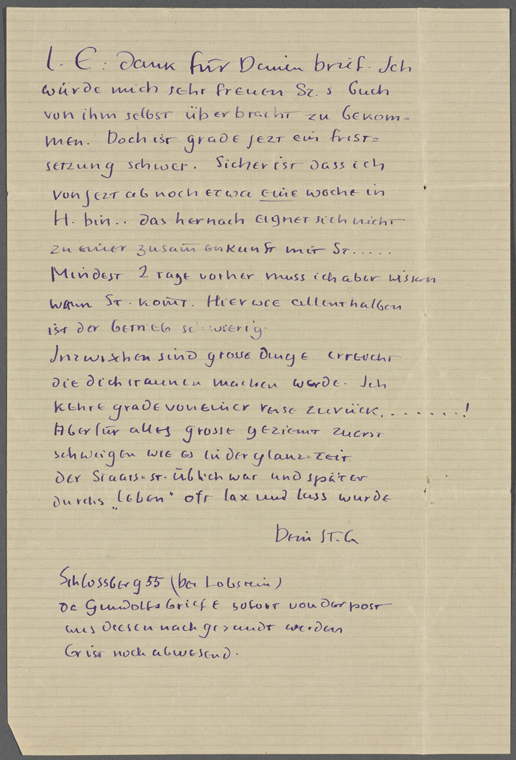 L. E: dank für Deinen brief. Ich
würde mich sehr freuen Sz.s buch
von ihm selbst überbracht zu bekom=
men. Doch ist grade jezt ein frist=
setzung schwer. Sicher ist dass ich
von jezt ab noch etwa eine woche in
H. bin.. das hernach eignet sich nicht
zu einer zusam̄enkunft mit St.....
Mindest 2 tage vorher muss ich aber wissen
wann St. kom̄t. Hier wie allenthalben
ist der betrieb schwierig.
Inzwischen sind grosse dinge erreicht
die dich staunen machen werde. Ich
kehre grade von einer reise zurück.......!
Aber für alles grosse geziemt zuerst
schweigen wie es in der glanz-zeit
der Staats-st. üblich war und später
durchs „leben" oft lax und lass wurde
Dein St. G
Schlossberg 55 (bei Lobstein)
da Gundolfs briefe sofort von der post
aus diesen nachgesandt werden
Er ist noch abwesend.